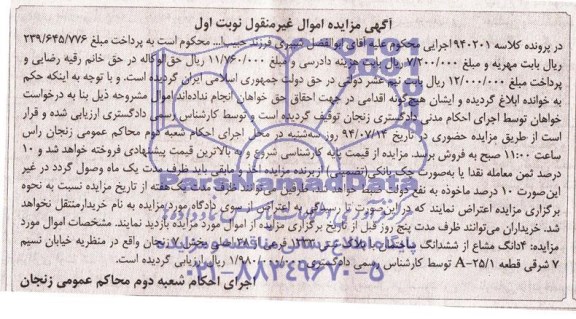 آگهی مزایده اموال غیرمنقول نوبت اول
در پرونده کلاسه ۹۴۰۲۰۱ اجرایی محکوم علیه آقای ابوالفضل فرزند محکوم است به پرداخت مبلغ ۲۳۹/۶۴۵/۷۷۶
ریال بابت مهریه و مبلغ ۷/۲۰۰/۰۰۰ ریال بابت هزینه دادرسی و مبلغ ۱۱/۷۶۰/۰۰۰ ریال حق‌الوکاله در حق خانم رقیه رضایی و
پرداخت مبلغ ۱۲/۰۰۰/۰۰۰ ریال بابت نیم عشر دولتی در حق دولت جمهوری اسلامی ایران گردیده است. و با توجه به اینکه حکم
به خوانده ابلاغ گردیده و ایشان هیچگونه اقدامی در جهت احقاق حق خواهان انجام نداده‌اند اموال مشروحه ذیل بنا به درخواست
خواهان توسط اجرای احکام مدنی دادگستری زنجان توقیف گردیده است و توسط کارشناس رسمی دادگستری ارزیابی شده و قرار
است از طریق مزایده حضوری در تاریخ ۹۴/۰۷/۱۴ روز سه‌شنبه در محل اجرای احکام شعبه دوم محاکم عمومی زنجان راس
ساعت ۱۱:۰۰ صبح به فروش برسد. مزایده از قیمت پایه کارشناسی شروع و به بالاترین قیمت پیشنهادی فروخته خواهد شد و ۱۰
درصد ثمن معامله نقدا یا به‌صورت چک بانکی (تضمینی) از برنده مزایده اخذ و مابقی باید ظرف مدت یک ماه وصول گردد در غیر
این‌صورت ۱۰ درصد ماخوذه به نفع دولت ضبط خواهد شد. طرفین می‌توانند ظرف مدت یک هفته از تاریخ مزایده نسبت به نحوه
برگزاری مزایده اعتراض نمایند که در این صورت تا رسیدگی به اعتراض از سوی دادگاه مورد مزایده به نام خریدار منتقل نخواهد
شد. خریداران می‌توانند ظرف مدت پنج روز قبل از تاریخ برگزاری مزایده از اموال مورد مزایده بازدید نمایند. مشخصات اموال مورد
مزایده: ۴دانگ مشاع از ششدانگ پلاک ثبتی ۱۳۳۳ فرعی از ۲۸ اصلی بخش زنجان واقع در منظریه خیابان نسیم
۷ شرقی قطعه A-۲۵/۱ توسط کارشناس رسمی دادگستری ۱/۹۸۰/۰۰۰/۰۰۰ ریال ارزیابی گردیده است.
اجرای احکام شعبه دوم محاکم عمومی زنجان
ParsNamadData
۰۲۱-۸۸۳۴۹۶۷۰-۵